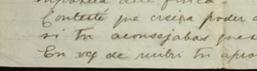 Contesté que creipa poder a
si tu aconsejabas que s
En vez de recibir tu apro